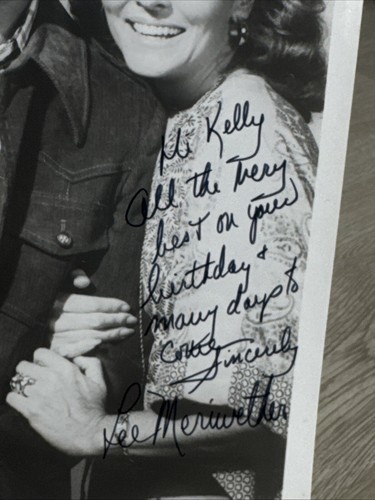 Kelly
All the very
best on your
birthday &
many days to
come
Sincerely
Lee Meriwether